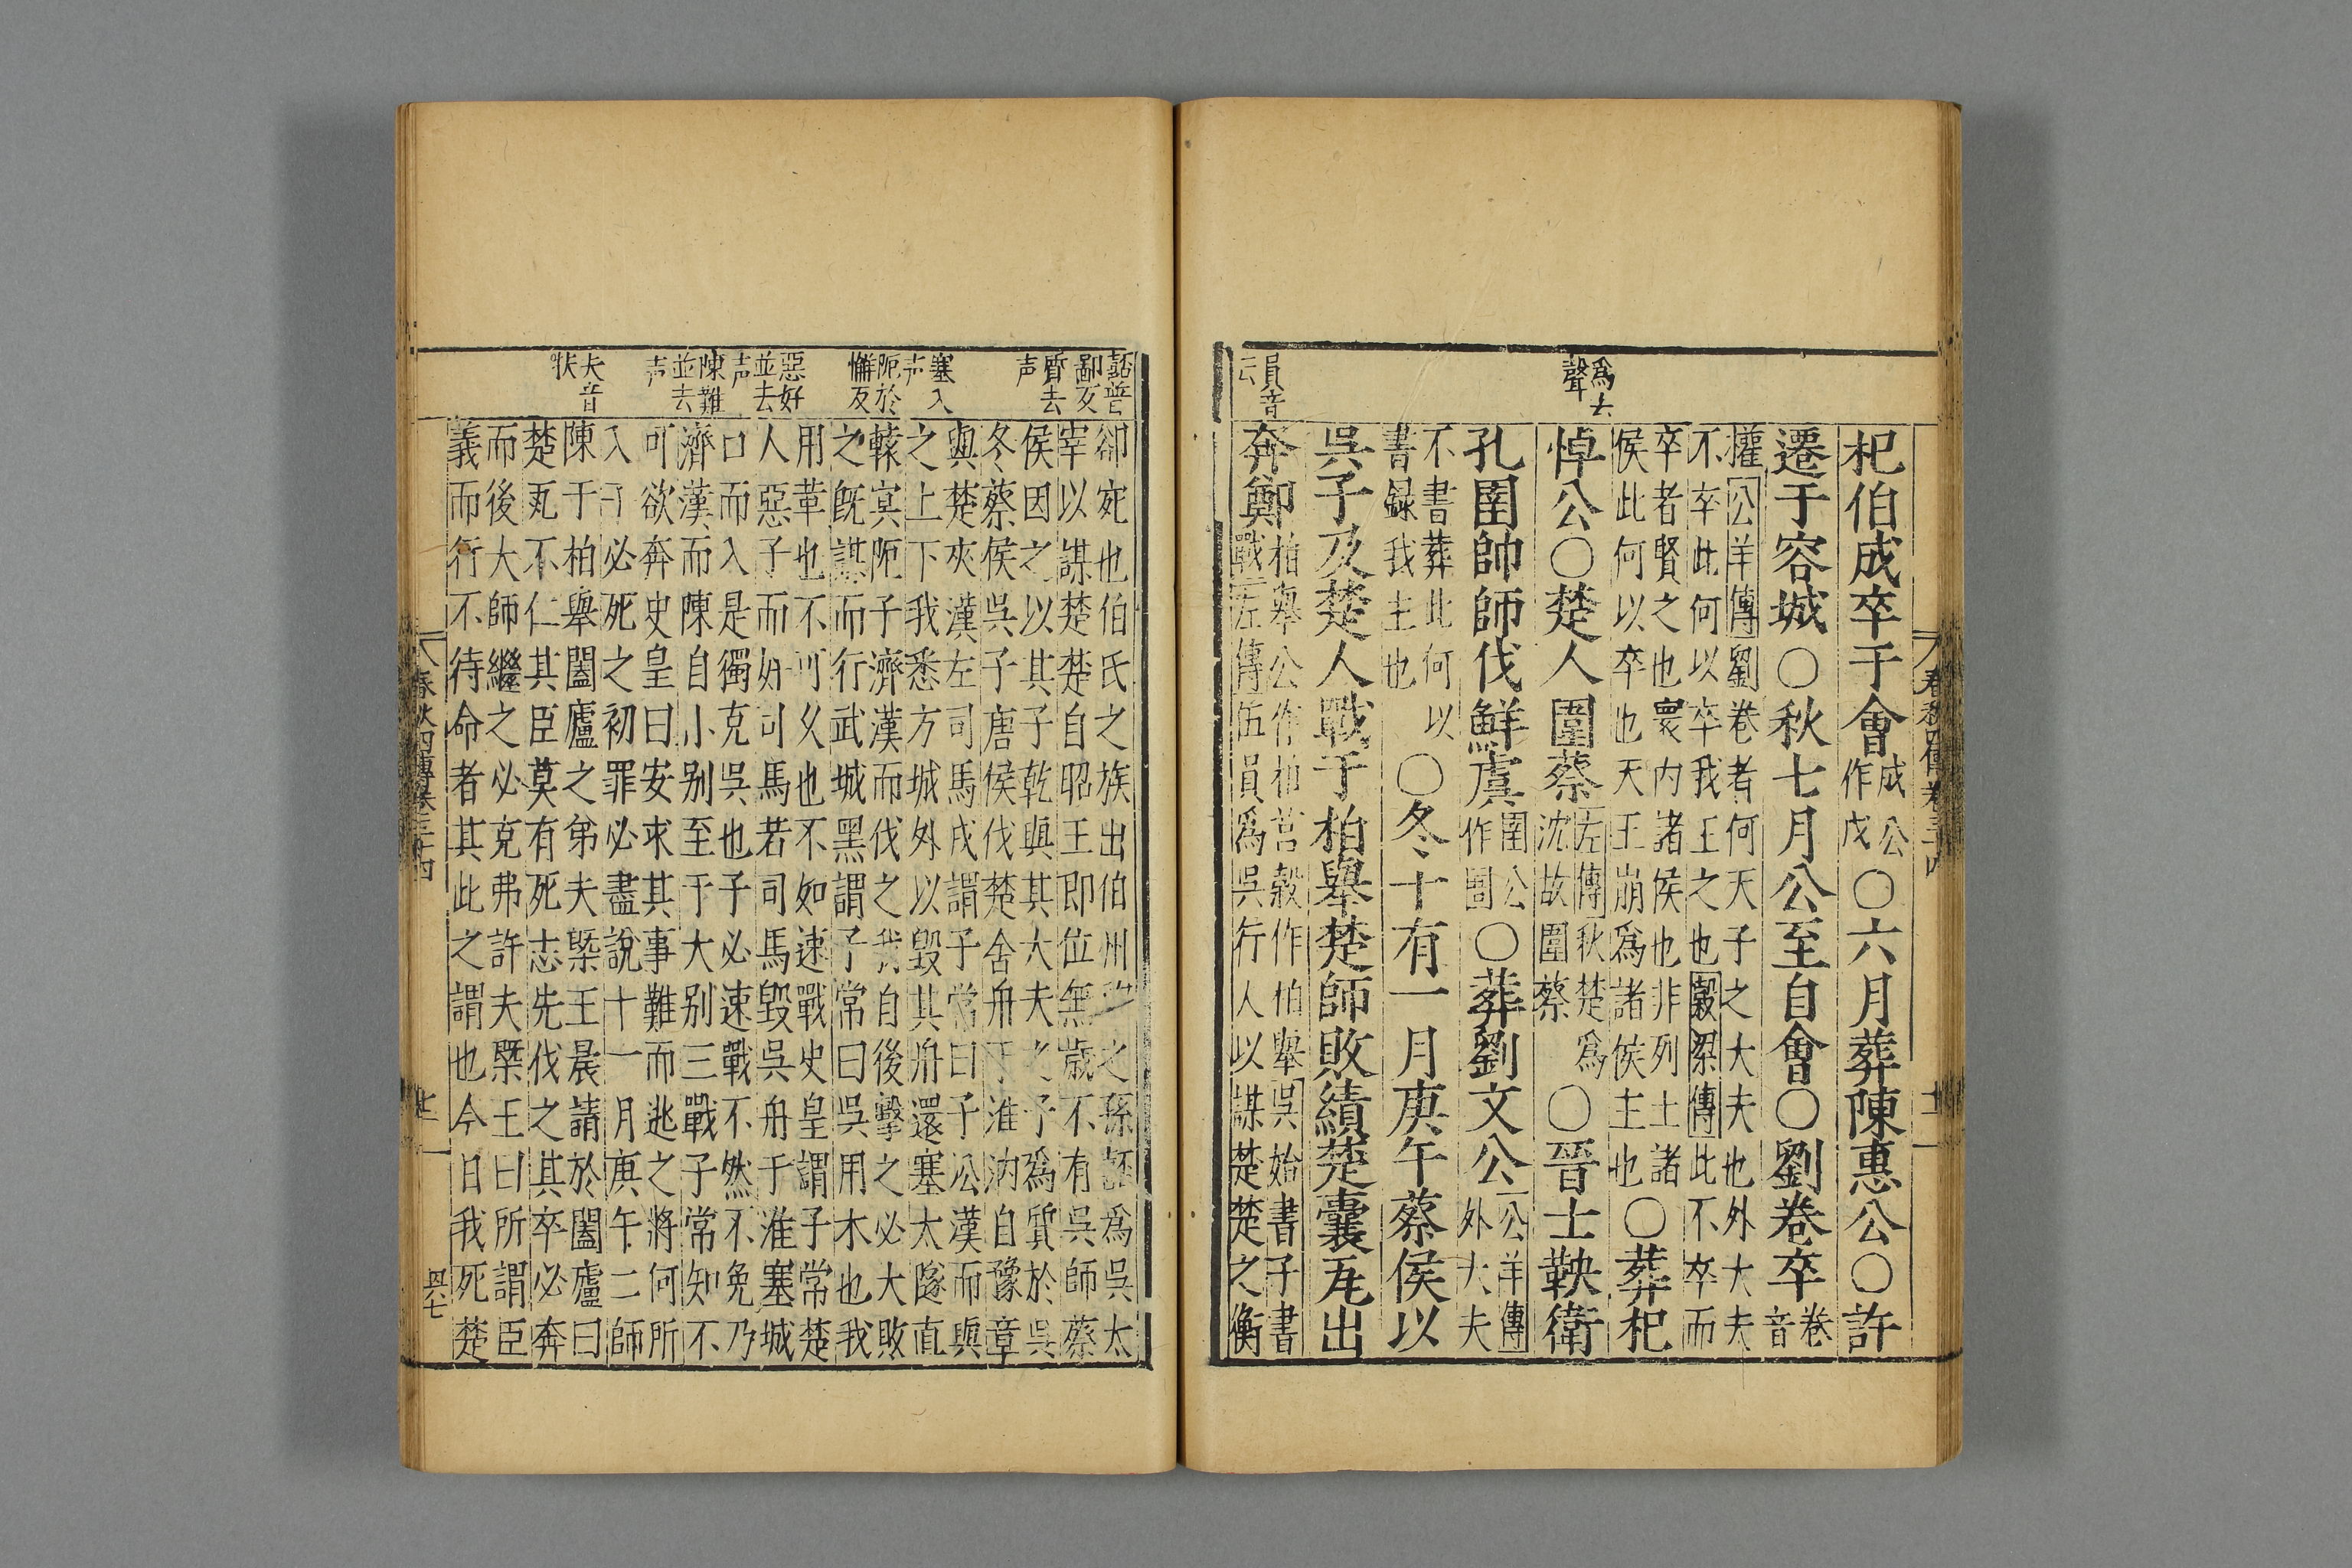 春秋四傳卷三十四
十一
爲去
聲
員音
云
杞伯成卒于會成公
作戊○六月葬陳惠公○許
遷于容城○秋七月公至自會○劉卷卒卷
音
權公羊傳劉卷者何天子之大夫也外大夫
不卒此何以卒我王之也穀梁傳此不卒而
卒者賢之也寰内諸侯也非列土諸
侯此何以卒也天王崩爲諸侯主也○葬杞
悼公○楚人圍蔡左傳秋楚爲
沈故圍蔡○晉士鞅衛
孔圉帥師伐鮮虞圉公
作圄○葬劉文公公羊傳
外大夫
不書葬此何以
書録我主也○冬十有一月庚午蔡侯以
吳子及楚人戰于柏舉楚師敗績楚囊瓦出
奔鄭柏舉公作柏莒穀作伯舉吳始書子書
戰左傳伍員爲吳行人以謀楚楚之衡
嚭普
鄙反
質去
声
塞入
声
阨於
懈反
惡好
並去
声
陳難
並去
声
夫音
扶
郤宛也伯氏之族出伯州犂之孫嚭爲吳太
宰以謀楚楚自昭王即位無歲不有吳師蔡
侯因之以其子乾與其大夫之子爲質於吳
冬蔡侯吳子唐侯伐楚舍舟于淮汭自豫章
與楚夾漢左司馬戌謂子常曰子沿漢而與
之上下我悉方城外以毀其舟還塞大隧直
轅冥阨子濟漢而伐之我自後擊之必大敗
之既謀而行武城黑謂子常曰吳用木也我
用革也不可久也不如速戰史皇謂子常楚
人惡子而好司馬若司馬毀吳舟于淮塞城
口而入是獨克吳也子必速戰不然不免乃
濟漢而陳自小别至于大别三戰子常知不
可欲奔史皇曰安求其事難而逃之將何所
入子必死之初罪必盡說十一月庚午二師
陳于柏舉闔廬之弟夫槩王晨請於闔廬曰
楚瓦不仁其臣莫有死志先伐之其卒必奔
而後大師繼之必克弗許夫槩王曰所謂臣
義而行不待命者其此之謂也今日我死楚
春秋四傳卷三十四
十一